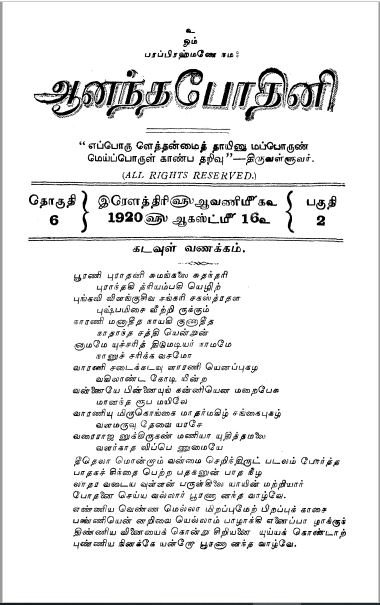 உ
ஓம்
பரப்பிரஹ்மணே நம:
ஆனந்தபோதினி
“எப்பொரு ளெத்தன்மைத் தாயினு மப்பொருண்
மெய்ப்பொருள் காண்ப தறிவு”—திருவள்ளுவர்.
(ALL RIGHTS RESERVED.)
தொகுதி
6
இரௌத்திரி௵ ஆவணிமீ கஉ
1920 ௵ ஆகஸ்ட்மீ 16உ
பகுதி
2
கடவுள் வணக்கம்.
பூரணி புராதனி சுமங்கலை சுதந்தரி
புராந்தகி த்ரியம்பகி யெழிற்
புங்கவி விளங்குசிவ சங்கரி சகஸ்த்ரதள
புஷ்பமிசை வீற்றி ருக்கும்
காரணி மனாதீத நாயகி குணாதீத
நாதாந்த சத்தி யென்றுன்
னாமமே யுச்சரித் திடுமடியர் நாமமே
நானுச் சரிக்க வசமோ
வாரணி சடைக்கடவு ளாரணி யெனப்புகழ
வகிலாண்ட கோடி யீன்ற
வன்னையே பின்னையுங் கன்னியென மறைபேசு
மானந்த ரூப மயிலே
வாரணியு மிருகொங்கை மாதர்மகிழ் கங்கைபுகழ்
வளமருவு தேவை யரசே
வரைராஜ னுக்கிருகண் மணியா யுதித்தமலை
வளர்காத லிப்பெ ணுமையே
தீதெலா மொன்றாம் வன்மை செறிந்திருட் படலம் போர்த்த
பாதகச் சிந்தை பெற்ற பதகனுன் பாத நீழ
லாதர வடைய வுள்ளன் பருள்கிலை யாயின் மற்றியார்
போதனை செய்ய வல்லார் பூரணா னந்த வாழ்வே.
எண்ணிய வெண்ண மெல்லா மிறப்புமேற் பிறப்புக் காசை
பண்ணியென் னறிவை யெல்லாம் பாழாக்கி எனைப்பா ழாக்குந்
திண்ணிய வினையைக் கொன்று சிறியனை யுய்யக் கொண்டாற்
புண்ணிய நினக்கே யன்றோ பூரணா னந்த வாழ்வே.